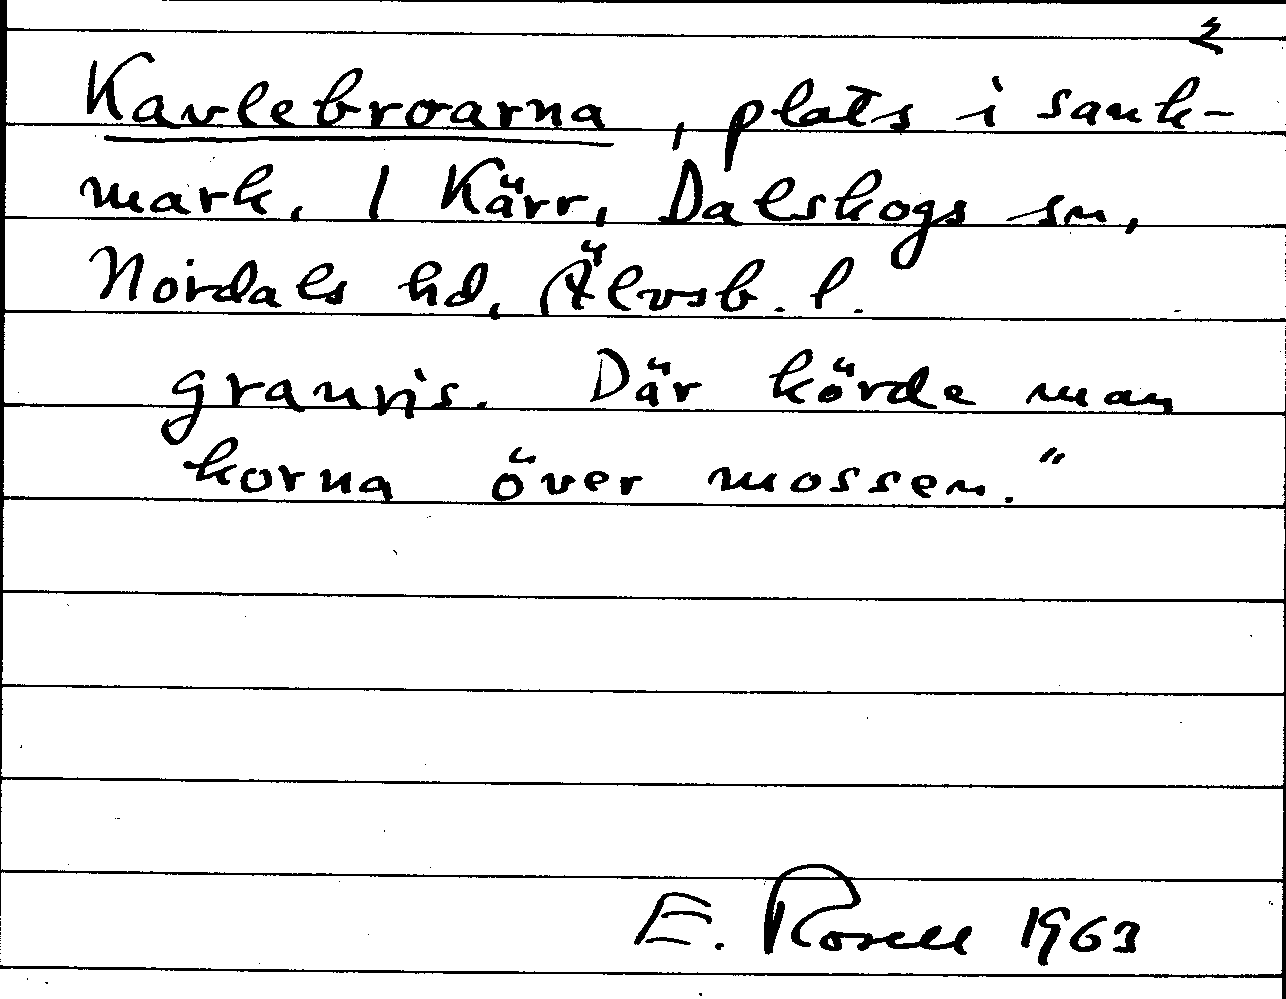 2
Kavlebroarna, plats i sank-
mark. 1 Kärr, Dalskogs sn,
Nordals hd, Älvsb. l.
granris. Där körde man
korna över mossen."
E. Rosell 1963